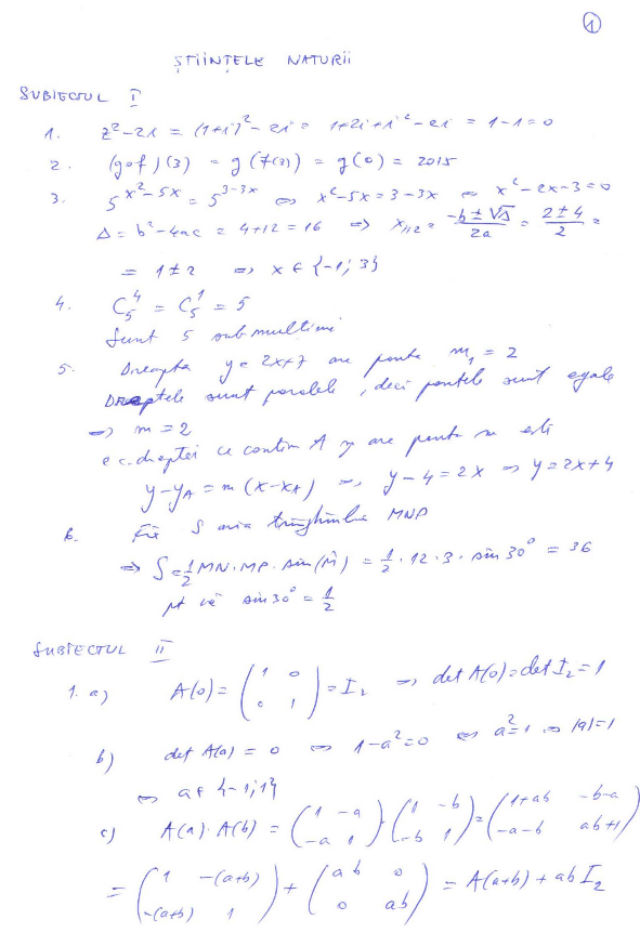 1
ȘTIINȚELE NATURII
SUBIECTUL I
1. z²-2i = (1+i)²-2i = 1+2i+i²-2i = 1-1=0
2. (g∘f)(3) = g(f(3)) = g(0) = 2015
3. 5^(x²-5x) = 5^(3-3x) ⇔ x²-5x=3-3x ⇔ x²-2x-3=0
Δ = b²-4ac = 4+12=16 ⇒ x₁,₂ = (-b±√Δ)/2a = (2±4)/2 =
= 1±2 ⇒ x ∈ {-1; 3}
4. C₅⁴ = C₅¹ = 5
Sunt 5 submultimi
5. Dreapta y = 2x+7 are panta m₁ = 2
Dreptele sunt paralele, deci pantele sunt egale
⇒ m = 2
ec. dreptei ce contin A și are panta m este
y-y_A = m(x-x_A) ⇒ y-4=2x ⇒ y=2x+4
6. Fie S aria triunghiului MNP
⇒ S=½MN·MP·sin(M̂) = ½·12·3·sin30° = 36
pt că sin30° = ½
SUBIECTUL II
1. a) A(0) = (1 0; 0 1) = I₂ ⇒ det A(0)=det I₂=1
b) det A(a) = 0 ⇔ 1-a²=0 ⇔ a²=1 ⇔ |a|=1
⇔ a∈{-1;1}
c) A(a)·A(b) = (1 -a; -a 1)·(1 -b; -b 1) = (1+ab -b-a; -a-b ab+1)
= (1 -(a+b); -(a+b) 1) + (ab 0; 0 ab) = A(a+b) + ab I₂